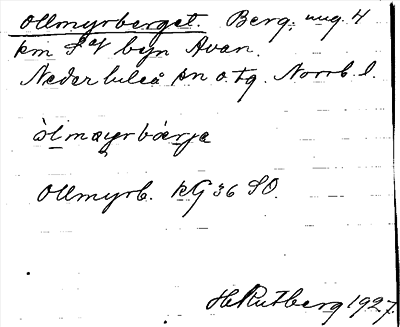 Ollmyrberget. Berg, ung. 4
km S af byn Avan.
Nederluleå sn o tg. Norrb. l.
òlmayrbærje
Ollmyrb. kG 36 SO.
H Rutberg 1927.